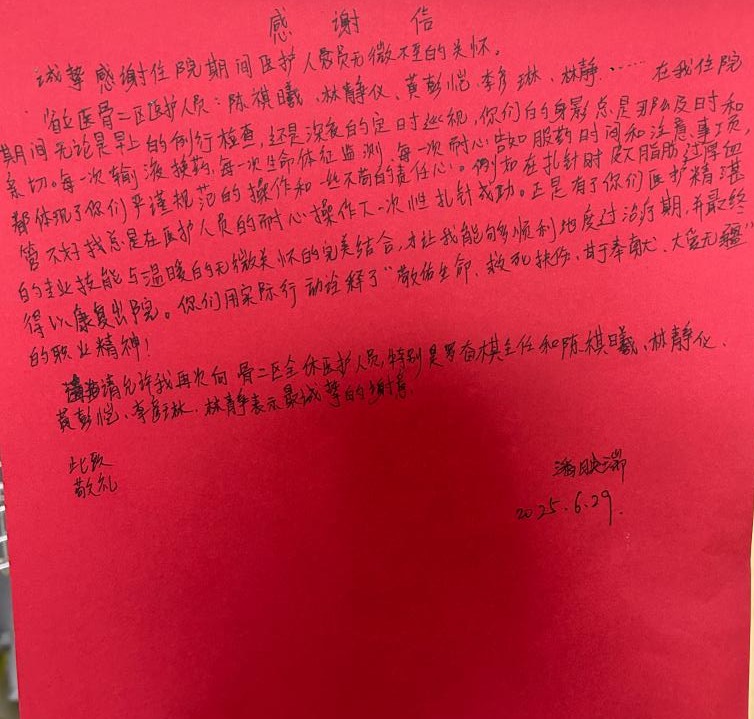 感谢信
诚挚感谢住院期间医护人员无微不至的关怀。
省医骨二区医护人员：陈祺曦、林静仪、黄彭恺、李彦琳、林静……在我住院
期间无论是早上的例行检查，还是深夜的定时巡视，你们的身影总是那么及时和
亲切。每一次输液换药，每一次生命体征监测，每一次耐心告知服药时间和注意事项
都体现了你们严谨规范的操作和一丝不苟的责任心。例如在扎针时皮下脂肪过厚血
管不好找总是在医护人员的耐心操作下一次性扎针成功。正是有了你们医护精湛
的专业技能与温暖的无微关怀的完美结合，才让我能够顺利地度过治疗期，并最终
得以康复出院。你们用实际行动诠释了“敬佑生命、救死扶伤、甘于奉献、大爱无疆”
的职业精神！
请允许我再次向骨二区全体医护人员，特别是罗奋棋主任和陈祺曦、林静仪、
黄彭恺、李彦琳、林静表示最诚挚的谢意。
此致
敬礼
潘映瑞
2025.6.29.